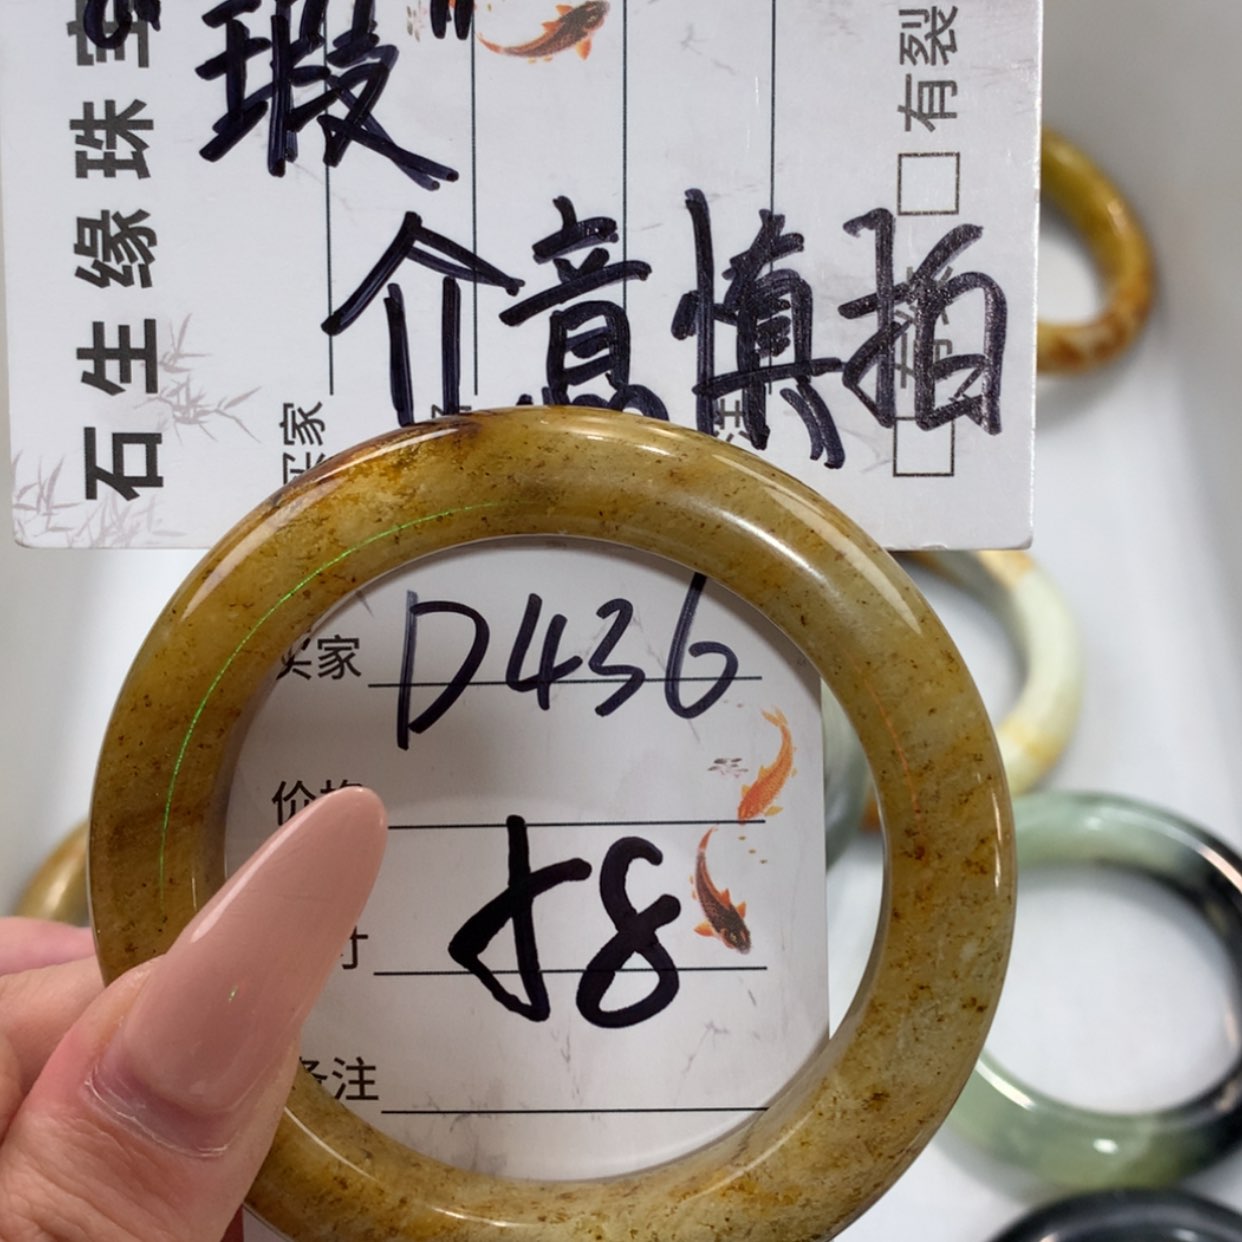 石生缘珠宝
"瑕"
介意慎拍
有裂
买家
注
买家 D436
价格
寸
备注